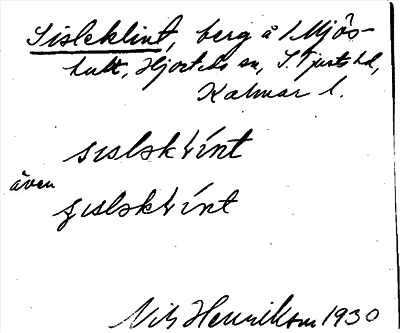 Sisleklint, berg å Mjös-
hult, Hjorteds sn, S. Tjusts hd,
Kalmar l.
sıslǝkłínt
även
gıslǝkłínt
Nils Henrikson 1930